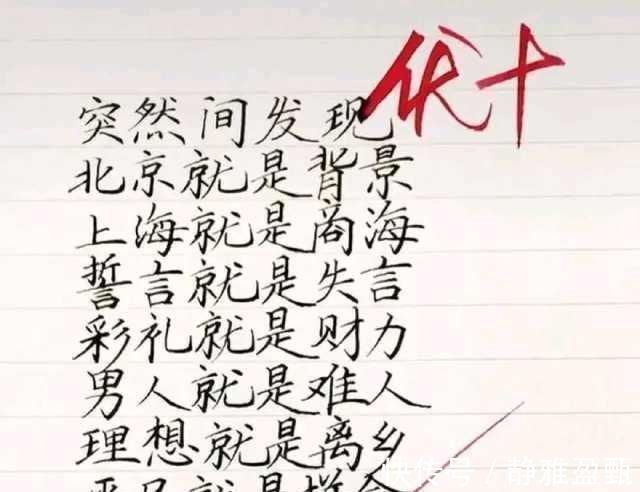 优+
突然间发现
北京就是背景
上海就是商海
誓言就是失言
彩礼就是财力
男人就是难人
理想就是离乡
快传号/静雅盈甄